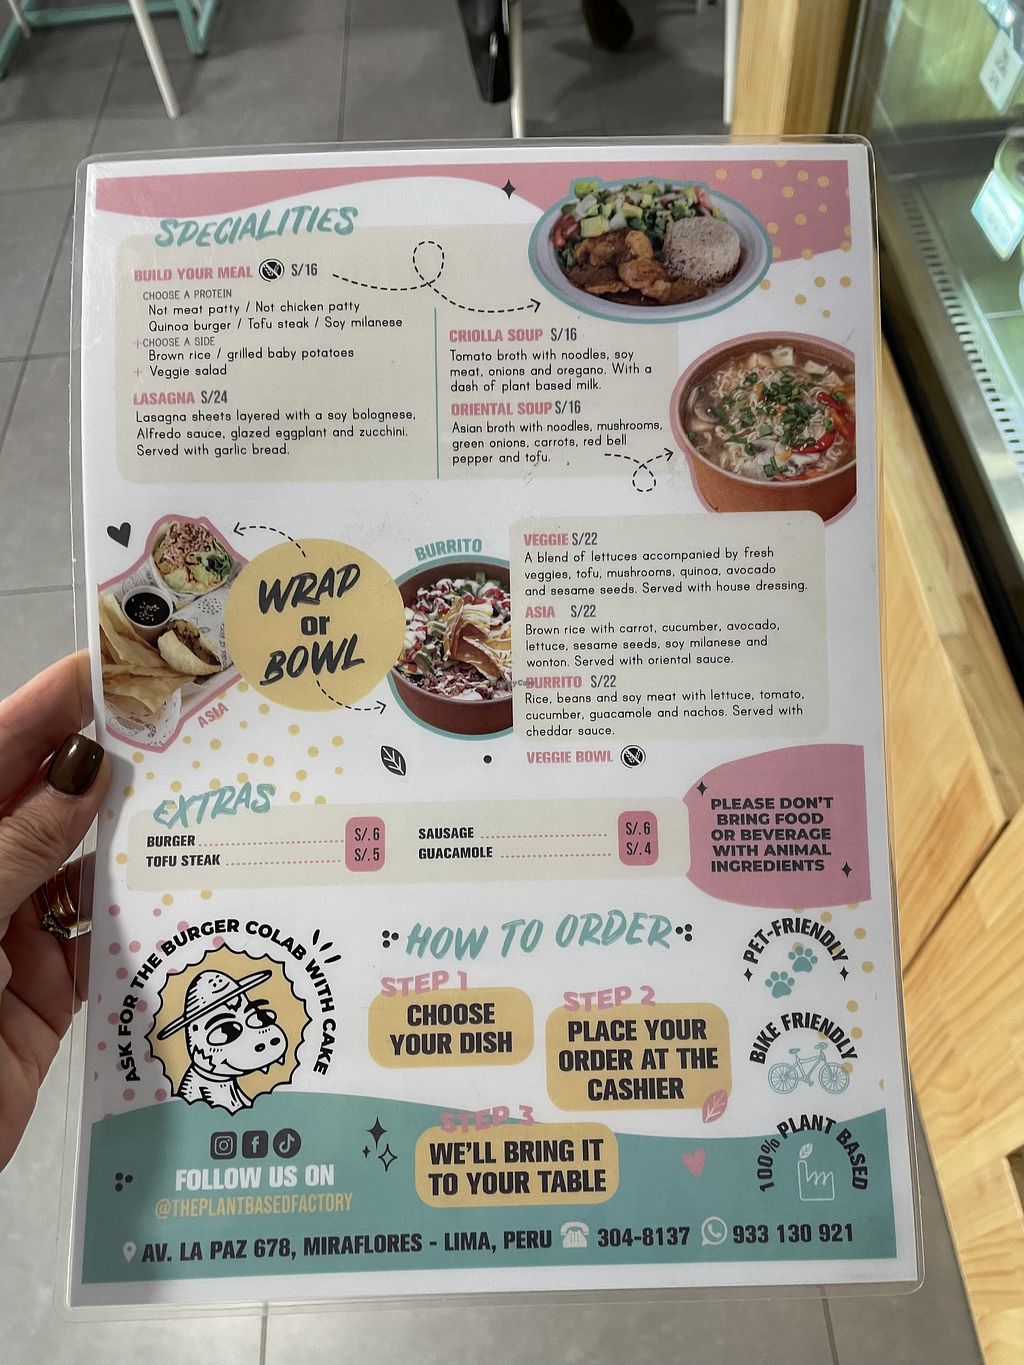 SPECIALITIES
BUILD YOUR MEAL S/16
CHOOSE A PROTEIN
Not meat patty / Not chicken patty
Quinoa burger / Tofu steak / Soy milanese
+CHOOSE A SIDE
Brown rice / grilled baby potatoes
+ Veggie salad
LASAGNA S/24
Lasagna sheets layered with a soy bolognese,
Alfredo sauce, glazed eggplant and zucchini.
Served with garlic bread.
CRIOLLA SOUP S/16
Tomato broth with noodles, soy
meat, onions and oregano. With a
dash of plant based milk.
ORIENTAL SOUP S/16
Asian broth with noodles, mushrooms,
green onions, carrots, red bell
pepper and tofu.
WRAP
or
BOWL
ASIA
BURRITO
VEGGIE S/22
A blend of lettuces accompanied by fresh
veggies, tofu, mushrooms, quinoa, avocado
and sesame seeds. Served with house dressing.
ASIA S/22
Brown rice with carrot, cucumber, avocado,
lettuce, sesame seeds, soy milanese and
wonton. Served with oriental sauce.
BURRITO S/22
Rice, beans and soy meat with lettuce, tomato,
cucumber, guacamole and nachos. Served with
cheddar sauce.
VEGGIE BOWL
EXTRAS
BURGER S/.6
TOFU STEAK S/.5
SAUSAGE S/.6
GUACAMOLE S/.4
PLEASE DON'T
BRING FOOD
OR BEVERAGE
WITH ANIMAL
INGREDIENTS
ASK FOR THE BURGER COLAB WITH CAKE
HOW TO ORDER
STEP 1
CHOOSE
YOUR DISH
STEP 2
PLACE YOUR
ORDER AT THE
CASHIER
STEP 3
WE'LL BRING IT
TO YOUR TABLE
PET-FRIENDLY
BIKE FRIENDLY
100% PLANT BASED
FOLLOW US ON
@THEPLANTBASEDFACTORY
AV. LA PAZ 678, MIRAFLORES - LIMA, PERU 304-8137 933 130 921